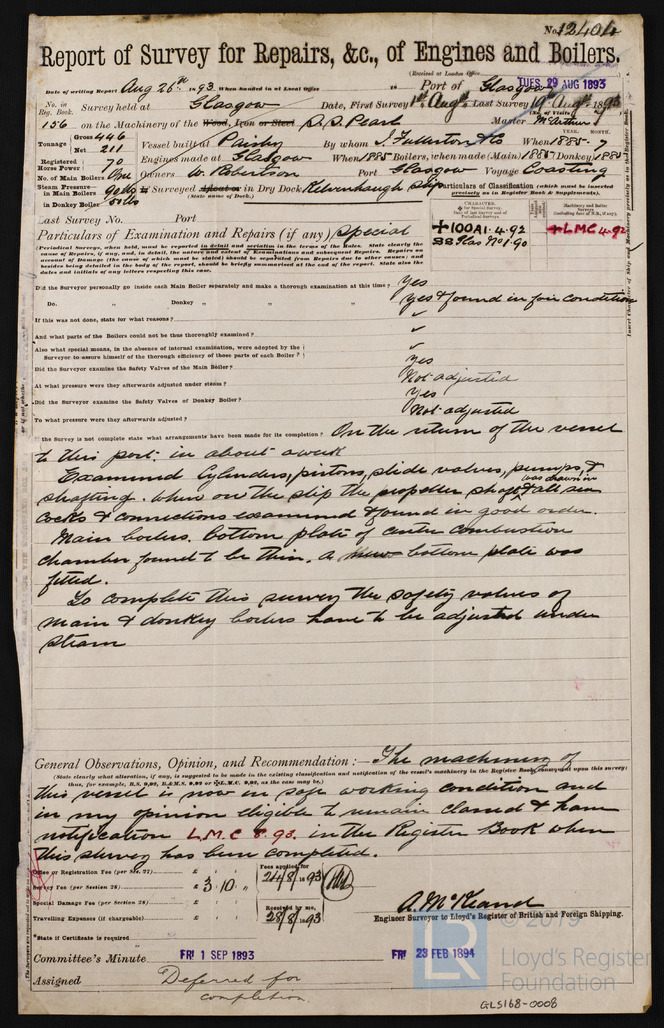 No. 12404
Report of Survey for Repairs, &c., of Engines and Boilers.
(Received at London Office
TUES. 29 AUG 1893
Date of writing Report Aug 26th 1893 When handed in at Local Office 18 Port of Glasgow
No. in Reg. Book. Survey held at Glasgow Date, First Survey 1st Aug Last Survey 19th Aug 1893
(No. of Visits)
156 on the Machinery of the Wood, Iron or Steel S.S. Pearl Master McArthur
Tonnage Gross 446 Net 211 Vessel built at Paisley By whom J. Fullerton & Co When 1885 - 7
YEAR. MONTH.
Registered Horse Power 70 Engines made at Glasgow When 1885 Boilers, when made (Main) 1885 Donkey 1885
No. of Main Boilers One Owners W. Robertson Port Glasgow Voyage Coasting
Steam Pressure in Main Boilers 90 lbs If Surveyed Afloat or in Dry Dock Kelvinhaugh Slip
in Donkey Boiler 50 lbs (State name of Dock.)
Particulars of Classification (which must be inserted precisely as in Register Book & Supplements).
Last Survey No. Port
CHARACTER.
Machinery and Boiler Surveys
+100A1. 4.92
SS Glas No 1. 90
+LMC 4.92
Particulars of Examination and Repairs (if any) Special
(Periodical Surveys, when held, must be reported in detail and seriatim in the terms of the Rules. State clearly the cause of Repairs, if any, and, in detail, the nature and extent of Examinations and subsequent Repairs. Repairs on account of Damage (the cause of which must be stated) should be separated from Repairs due to other causes; and besides being detailed in the body of the report, should be briefly summarised at the end of the report. State also the dates and initials of any letters respecting this case.
Did the Surveyor personally go inside each Main Boiler separately and make a thorough examination at this time? Yes
Do. " Donkey " " " Yes & found in fair condition
If this was not done, state for what reasons?
And what parts of the Boilers could not be thus thoroughly examined?
Also what special means, in the absence of internal examination, were adopted by the Surveyor to assure himself of the thorough efficiency of those parts of each Boiler?
Did the Surveyor examine the Safety Valves of the Main Boiler? Yes
At what pressure were they afterwards adjusted under steam? Not adjusted
Did the Surveyor examine the Safety Valves of Donkey Boiler? Yes
To what pressure were they afterwards adjusted? Not adjusted
If the Survey is not complete state what arrangements have been made for its completion? On the return of the vessel
to this port in about a week
Examined Cylinders, pistons, slide valves, pumps, &
shafting. When on the slip the propeller shaft was drawn in & all sea
cocks & connections examined & found in good order.
Main boilers. bottom plate of center combustion
chamber found to be thin. A new bottom plate was
fitted.
To complete this survey the safety valves of
main & donkey boilers have to be adjusted under
steam
General Observations, Opinion, and Recommendation:— The machinery of
(State clearly what alteration, if any, is suggested to be made in the existing classification and notification of the vessel's machinery in the Register Book consequent upon this survey;
thus, for example, B.S. 9,92, B.&M.S. 9,92 or +L.M.C. 9,92, as the case may be.)
this vessel is now in safe working condition and
in my opinion eligible to remain classed & have
notification L.M.C 8.93. in the Register Book when
this survey has been completed.
Office or Registration Fee (per Sec. 27) £ : :
Fees applied for 24/8/1893
Survey Fee (per Section 28) £ 3 : 10 : "
Special Damage Fee (per Section 28) £ : :
Received by me, 28/8/1893
Travelling Expenses (if chargeable) £ : :
A. McKeand
Engineer Surveyor to Lloyd's Register of British and Foreign Shipping.
*State if Certificate is required
Committee's Minute FRI 1 SEP 1893 FRI 23 FEB 1894
Assigned Deferred for
completion
© 2019
LR
Lloyd's Register
Foundation
GLS168-0008